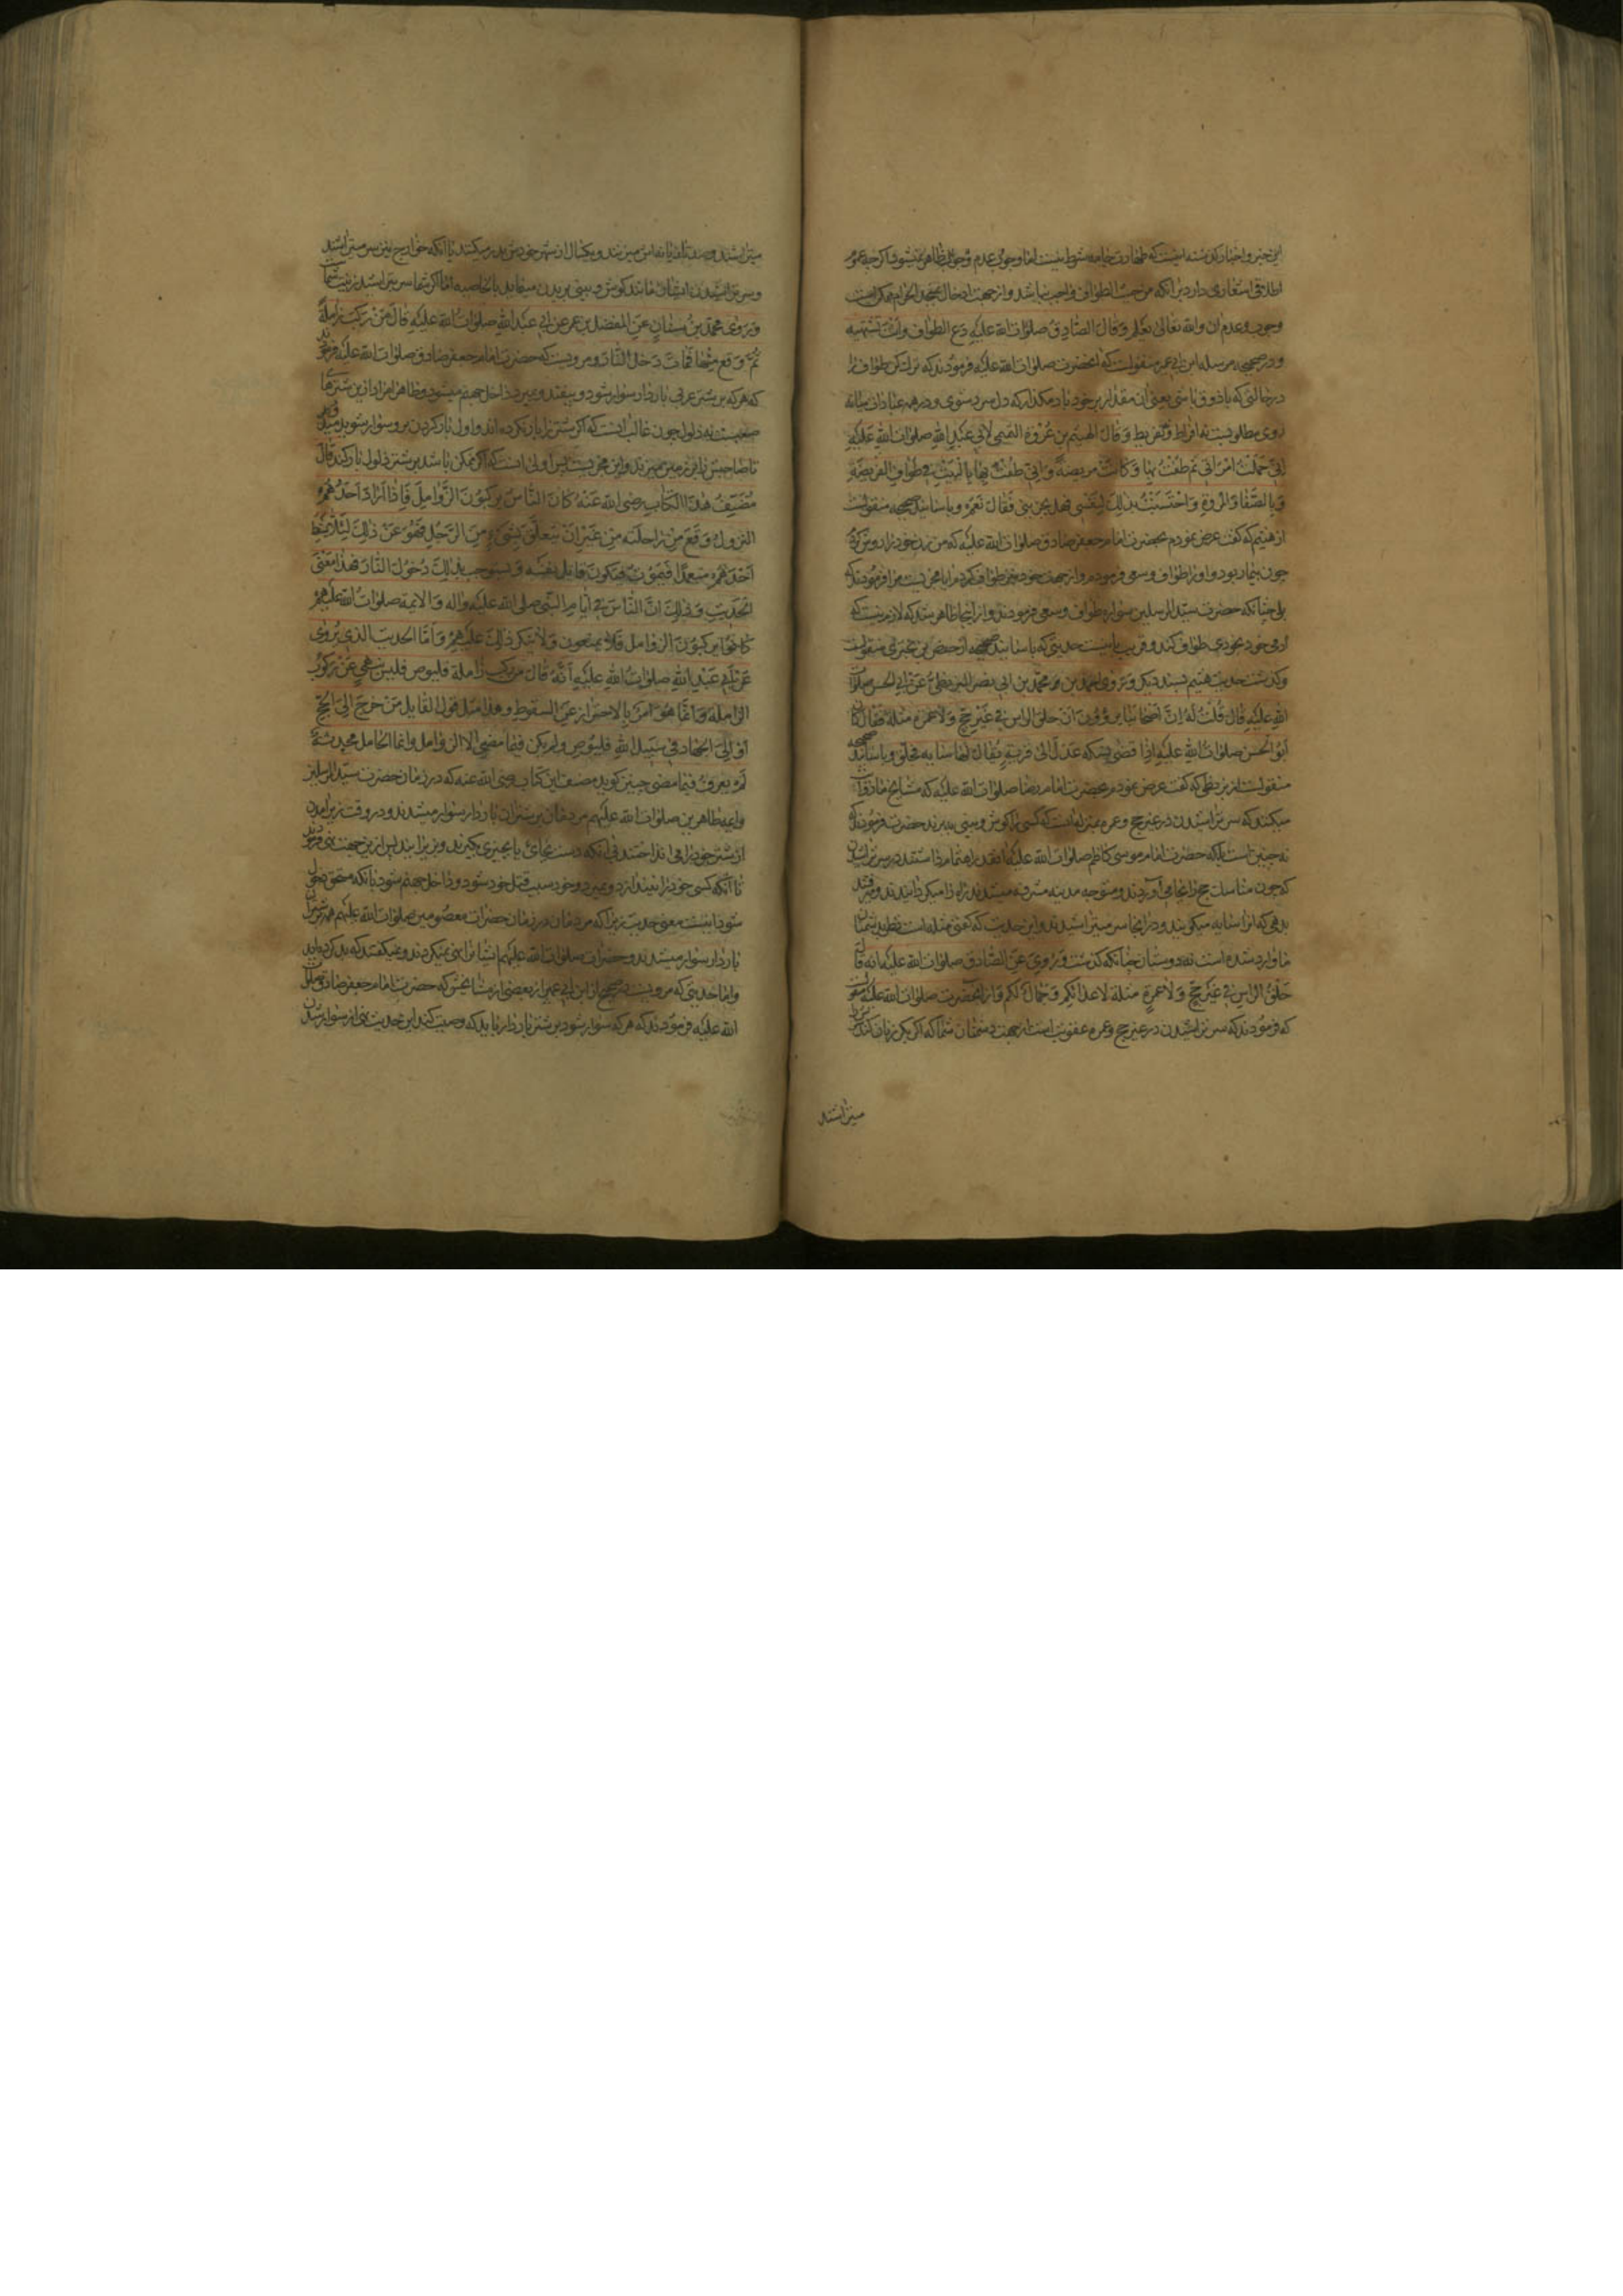 این خبر و اخبار گذشته اینست که طهارت جامه شرط نیست اما وجوب و عدم وجوبش ظاهر نمیشود اگر چه عموم
اطلاقی اشعاری دارد بر آنکه من حیث الطواف واجب نباشد و از جهت ادخال مسجد الحرام ممکن است
وجوب و عدم آن والله تعالی یعلم وقال الصادق صلوات الله علیه دع الطواف وانت تشتهیه
و در صحیحه مرسله ابن ابی عمیر منقولست که آنحضرت صلوات الله علیه فرمودند که ترک کن طواف را
در حالتی که با ذوق باشی یعنی آن مقدار بر خود بار مکن که دل سرد شوی و در همه عبادات میانه
روی مطلوبست نه افراط و تفریط وقال الهیثم بن عروة التمیمی لابی عبد الله صلوات الله علیه
انی حملت امراتی ثم طفت بها وکانت مریضة وانی طفت بها بالبیت فی طواف الفریضة
وبالصفا والمروة واحتسبت بذلک لنفسی فهل یجزینی فقال نعم و باسانید صحیحه منقولست
از هیثم که گفت عرض نمودم بحضرت امام جعفر صادق صلوات الله علیه که من زن خود را بدوش کرده
چون بیمار بود و او را طواف و سعی فرمودم و از جهت خود نیز طواف کردم آیا مجزیست مرا فرمودند که
بلی چنانکه حضرت سید المرسلین سواره طواف و سعی فرمودند و از اینجا ظاهر شد که لازم نیست که
آدمی خود بخودی طواف کند و قریب باینست حدیثی که باسانید صحیحه از حفص بن بختری منقولست
وگذشت حدیث هیثم بسند دیگر وروی احمد بن محمد بن ابی نصر البزنطی عن ابی الحسن صلوات
الله علیه قال قلت له ان اصحابنا یروون ان حلق الراس فی غیر حج ولا عمرة مثلة فقال کان
ابو الحسن صلوات الله علیه اذا قضی نسکه عدل الی قریة یقال لها سایه فحلق و باسانید صحیحه
منقولست از بزنطی که گفت عرض نمودم بحضرت امام رضا صلوات الله علیه که مشایخ ما روایت
میکنند که سر تراشیدن در غیر حج و عمره بمنزله آنست که کسی را گوش و بینی ببرند حضرت فرمودند که
نه چنین است بلکه حضرت امام موسی کاظم صلوات الله علیه آنقدر اهتمام داشتند در سر تراشیدن
که چون مناسک حج را بجا می آوردند و متوجه مدینه مشرفه میشدند راه را میگردانیدند و میرفتند
بدهی که آنرا سایه میگویند و در آنجا سر میتراشیدند و این حدیث که گفتی مثله است نظر بدشمنان
ما وارد شده است نه دوستان چنانکه گذشت وروی عن الصادق صلوات الله علیه انه قال
حلق الراس فی غیر حج ولا عمرة مثلة لاعدائکم وجمال لکم و از آنحضرت صلوات الله علیه منقولست
که فرمودند که سر تراشیدن در غیر حج و عمره عقوبت است از جهت دشمنان شما که اگر یکی زیان کند سرش را
میتراشند
میتراشند و بکسال از شهر خودش بدر میکنند با آنکه خوارج نیز سر میتراشند
و سر تراشیدن ایشان مانند گوش و بینی بریدن مینماید بالخاصیه اما اگر شما سر بتراشید زینت شماست
وروی محمد بن سنان عن المفضل بن عمر عن ابی عبد الله صلوات الله علیه قال من رکب زاملة
ثم وقع منها فمات دخل النار و مرویست که حضرت امام جعفر صادق صلوات الله علیه فرمودند
که هر که بر شتر عربی باردار سوار شود و بیفتد و بمیرد داخل جهنم میشود و ظاهرا مراد ازین شترها
صعبست نه ذلول چون غالب آنست که اگر شتر را بار نکرده اند و اول بار کردن برو سوار شوید میرمد
تا صاحبش را بر زمین میزند و این مجربست پس اولی آنست که اگر ممکن باشد بر شتر ذلول بار کند قال
مصنف هذا الکتاب رضی الله عنه کان الناس یرکبون الزوامل فاذا اراد احدهم
النزول وقع من راحلته من غیر ان یتعلق بشیء من الرحل فنهوا عن ذلک لئلا یسقط
احدهم متعمدا فیموت فیکون قاتل نفسه ویستوجب بذلک دخول النار فهذا معنی
الحدیث وذلک ان الناس فی ایام النبی صلی الله علیه واله والائمة صلوات الله علیهم
کانوا یرکبون الزوامل فلا یمنعون ولا ینکر ذلک علیهم واما الحدیث الذی یروی
عن ابی عبد الله صلوات الله علیه انه قال من رکب زاملة فلیوص فلیس بنهی عن رکوب
الزاملة وانما هو امر بالاحتراز عن السقوط وهذا مثل قول القایل من خرج الی الحج
او الی الجهاد فی سبیل الله فلیوص ولم یکن فیما مضی الا الزوامل وانما المحامل محدثة
لم یعرف فیما مضی چنین گوید مصنف این کتاب رضی الله عنه که در زمان حضرت سید المرسلین
وایمه طاهرین صلوات الله علیهم مردمان بر شتران باردار سوار میشدند و در وقت بزیر آمدن
از شتر خود را می انداختند بی آنکه دست بجائی یا بچیزی بگیرند و بزیر آیند پس ازین جهت نهی فرمودند
تا آنکه کسی خود را نیندازد و بمیرد و خود سبب قتل خود شود و داخل جهنم شود یا آنکه مستحق دخول
شود اینست معنی حدیث زیرا که مردمان در زمان حضرات معصومین صلوات الله علیهم همه بر شتران
باردار سوار میشدند و حضرات صلوات الله علیهم ایشانرا نهی نمیکردند و نمیگفتند که بد کرده اید
و اما حدیثی که مرویست در صحیح از ابن ابی عمیر از بعضی از مشایخش که حضرت امام جعفر صادق صلوات
الله علیه فرمودند که هر که سوار شود بر شتر باردار باید که وصیت کند این حدیث نهی از سوار شدن